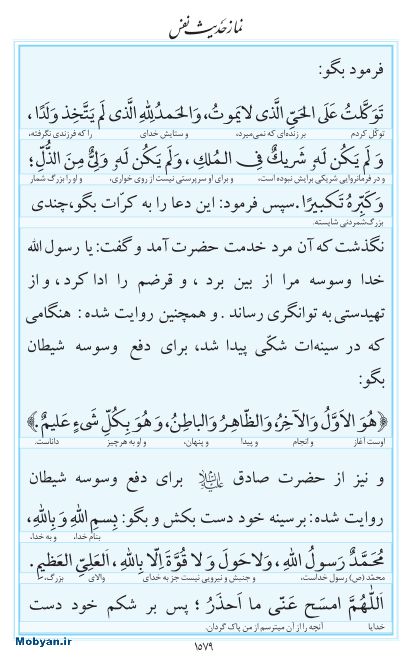 نماز حدیث نفس
فرمود بگو:
تَوَکَّلتُ عَلَی الحَیِّ الَّذی لایَموتُ، وَالحَمدُلِلّٰهِ الَّذی لَم یَتَّخِذ وَلَدًا،
توکل کردم بر زنده‌ای که نمی‌میرد، و ستایش خدای را که فرزندی نگرفته،
وَ لَم یَکُن لَهُ شَریکٌ فِی المُلکِ، وَلَم یَکُن لَهُ وَلِیٌّ مِنَ الذُّلِّ؛
و در فرمانروایی شریکی برایش نبوده است، و برای او سرپرستی نیست از روی خواری، و او را بزرگ شمار
وَ کَبِّرهُ تَکبیرًا. سپس فرمود: این دعا را به کرّات بگو، چندی
بزرگ شمردنی شایسته.
نگذشت که آن مرد خدمت حضرت آمد و گفت: یا رسول الله
خدا وسوسه مرا از بین برد ، و قرضم را ادا کرد ، و از
تهیدستی به توانگری رساند . و همچنین روایت شده : هنگامی
که در سینه‌ات شکّی پیدا شد، برای دفع وسوسه شیطان
بگو:
﴿هُوَ الاَوَّلُ وَالآخِرُ، وَالظّاهِرُ وَالباطِنُ، وَهُوَ بِکُلِّ شَیءٍ عَلیمٌ.﴾
اوست آغاز و انجام و پیدا و پنهان، و او به هر چیز داناست.
و نیز از حضرت صادق علیه‌السلام برای دفع وسوسه شیطان
روایت شده: بر سینه خود دست بکش و بگو: بِسمِ اللهِ وَ بِاللهِ،
بنام خدا، و به خدا،
مُحَمَّدٌ رَسولُ اللهِ، وَلاحَولَ وَ لا قُوَّةَ اِلّا بِاللهِ، اَلعَلِیِّ العَظیمِ.
محمّد (ص) رسول خداست، و جنبش و نیرویی نیست جز به خدای والای بزرگ،
اَللّٰهُمَّ امسَح عَنّی ما اَحذَرُ ؛ پس بر شکم خود دست
خدایا آنچه را از آن میترسم از من پاک گردان.
Mobyan.ir
۱۵۷۹